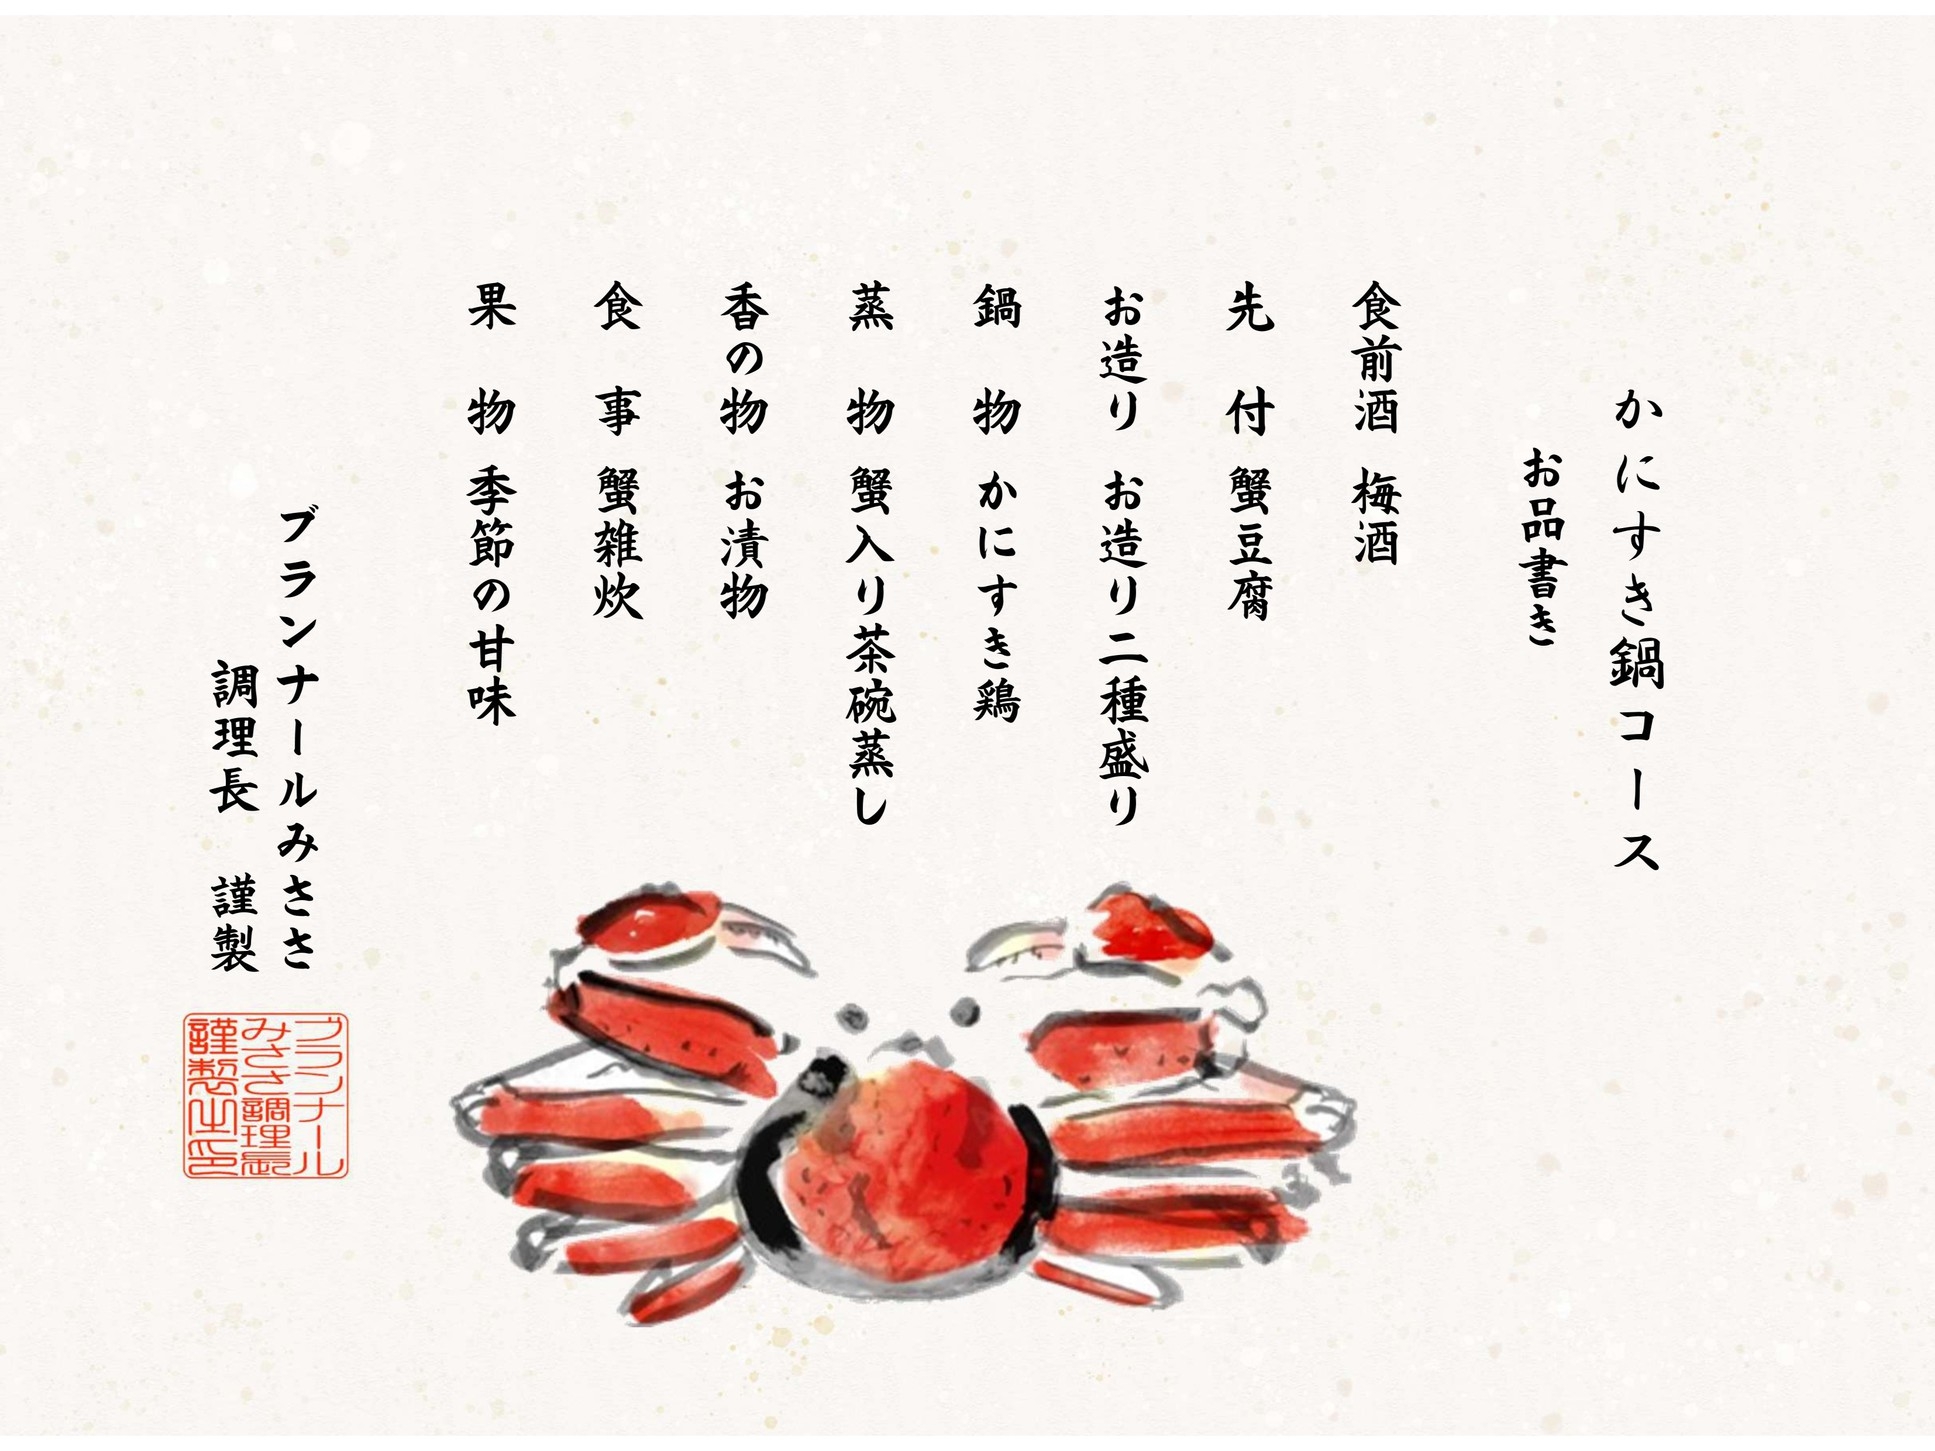 かにすき鍋コース
お品書き
食前酒 梅酒
先 付 蟹豆腐
お造り お造り二種盛り
鍋 物 かにすき鶏
蒸 物 蟹入り茶碗蒸し
香の物 お漬物
食 事 蟹雑炊
果 物 季節の甘味
ブランナールみささ
調理長 謹製
ブランナール
みささ調理長
謹製之印